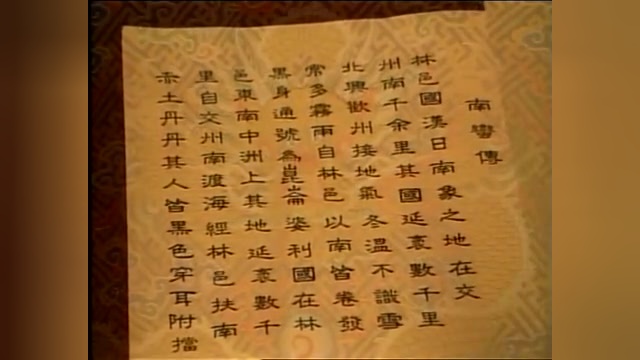 南蠻傳
林邑國漢日南象之地在交
州南千余里其國延袤數千里
北與歡州接地氣冬溫不識雪
常多霧雨自林邑以南皆卷發
黑身通號為崑崙婆利國在林
邑東南中洲上其地延袤數千
里自交州南渡海經林邑扶南
赤土丹丹其人皆黑色穿耳附擋